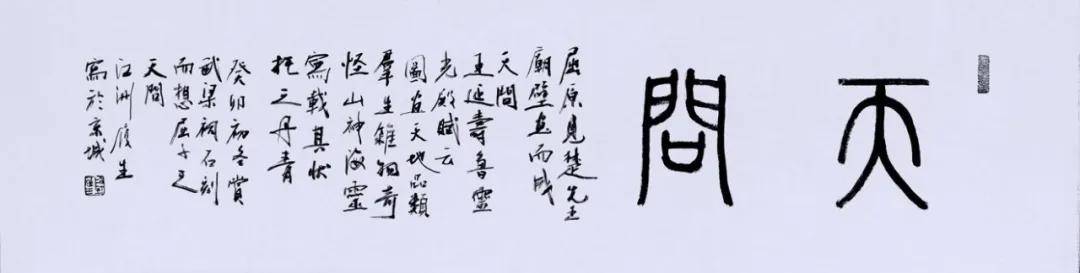 天問
屈原見楚先王
廟壁畫而成
天問
王延壽魯靈
光殿賦云
圖畫天地品類
羣生雜物奇
怪山神海靈
寫載其狀
托之丹青
癸卯初冬賞
武梁祠石刻
而想屈子之
天問
江洲履生
寫於京城